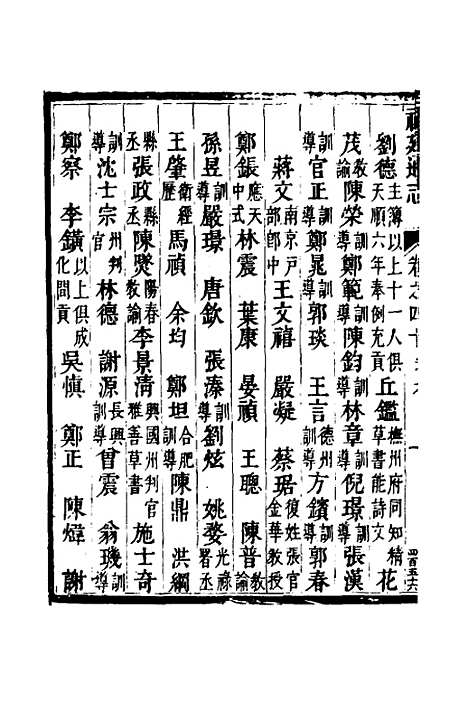 福建通志 卷之四十
劉德主簿以上十一人俱天順六年奉例充貢 丘鑑撫州府同知精草書能詩文 花
茂教諭 陳榮訓導 鄭範訓導 陳鈞訓導 林章訓導 倪璟訓導 張漢
訓導 官正訓導 鄭晁訓導 郭琰 王言德州訓導 方鑌訓導 郭春
蔣文南京戸部郎中 王文禧 嚴凝 蔡琚復姓張官金華教授
鄭銀應天中式 林震 葉康 晏禎 王聰 陳普教諭
孫昱訓導 嚴璟 唐欽 張溱訓導 劉炫 姚婺光祿署丞
王肇衛經歷 馬禎 余均 鄭坦合肥訓導 陳鼎 洪綱
縣丞 張政縣丞 陳煛陽春教諭 李景清興國州判官雅善草書 施士奇
訓導 沈士宗州判官 林德 謝源長興訓導 曾震 翁璣訓導
鄭察 李鐄以上俱成化間貢 吳慎 鄭正 陳煒 謝